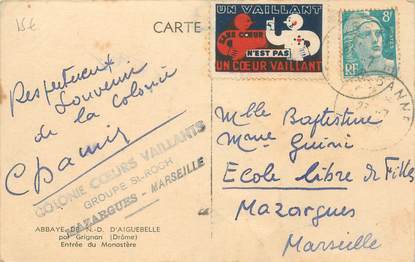 15€
CARTE
UN VAILLANT
SANS CŒUR
N'EST PAS
UN CŒUR VAILLANT
8F
RF
Respectueux
souvenir
de la colonie
COLONIE CŒURS VAILLANTS
GROUPE St-ROCH
MAZARGUES - MARSEILLE
ABBAYE DE N.-D. D'AIGUEBELLE
par Grignan (Drôme)
Entrée du Monastère
Mlle Baptistine
Mme
Ecole Libre de Filles
Mazargues
Marseille